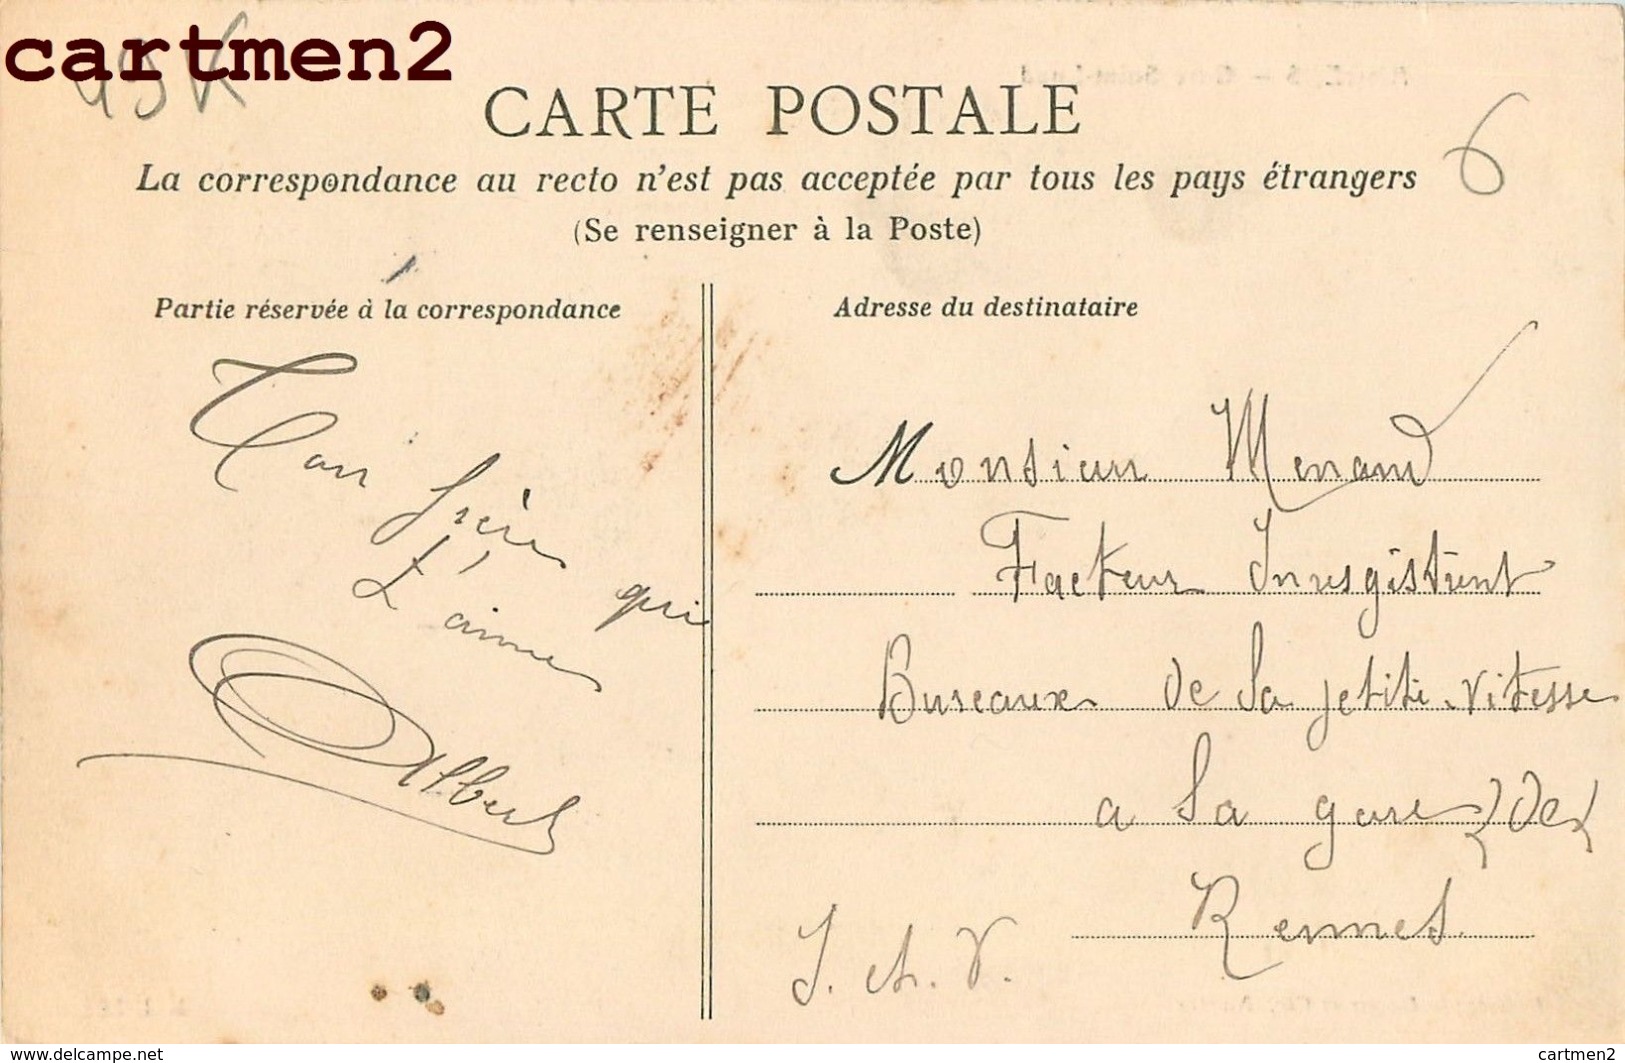 cartmen2
49 K
6
CARTE POSTALE
La correspondance au recto n'est pas acceptée par tous les pays étrangers
(Se renseigner à la Poste)
Partie réservée à la correspondance
Ton frère qui
t'aime
Albert
Adresse du destinataire
Monsieur Menand
Facteur Inresgistrent
Bureaux de la petite vitesse
a la gare de
Rennes
I. et. V.
www.delcampe.net
cartmen2